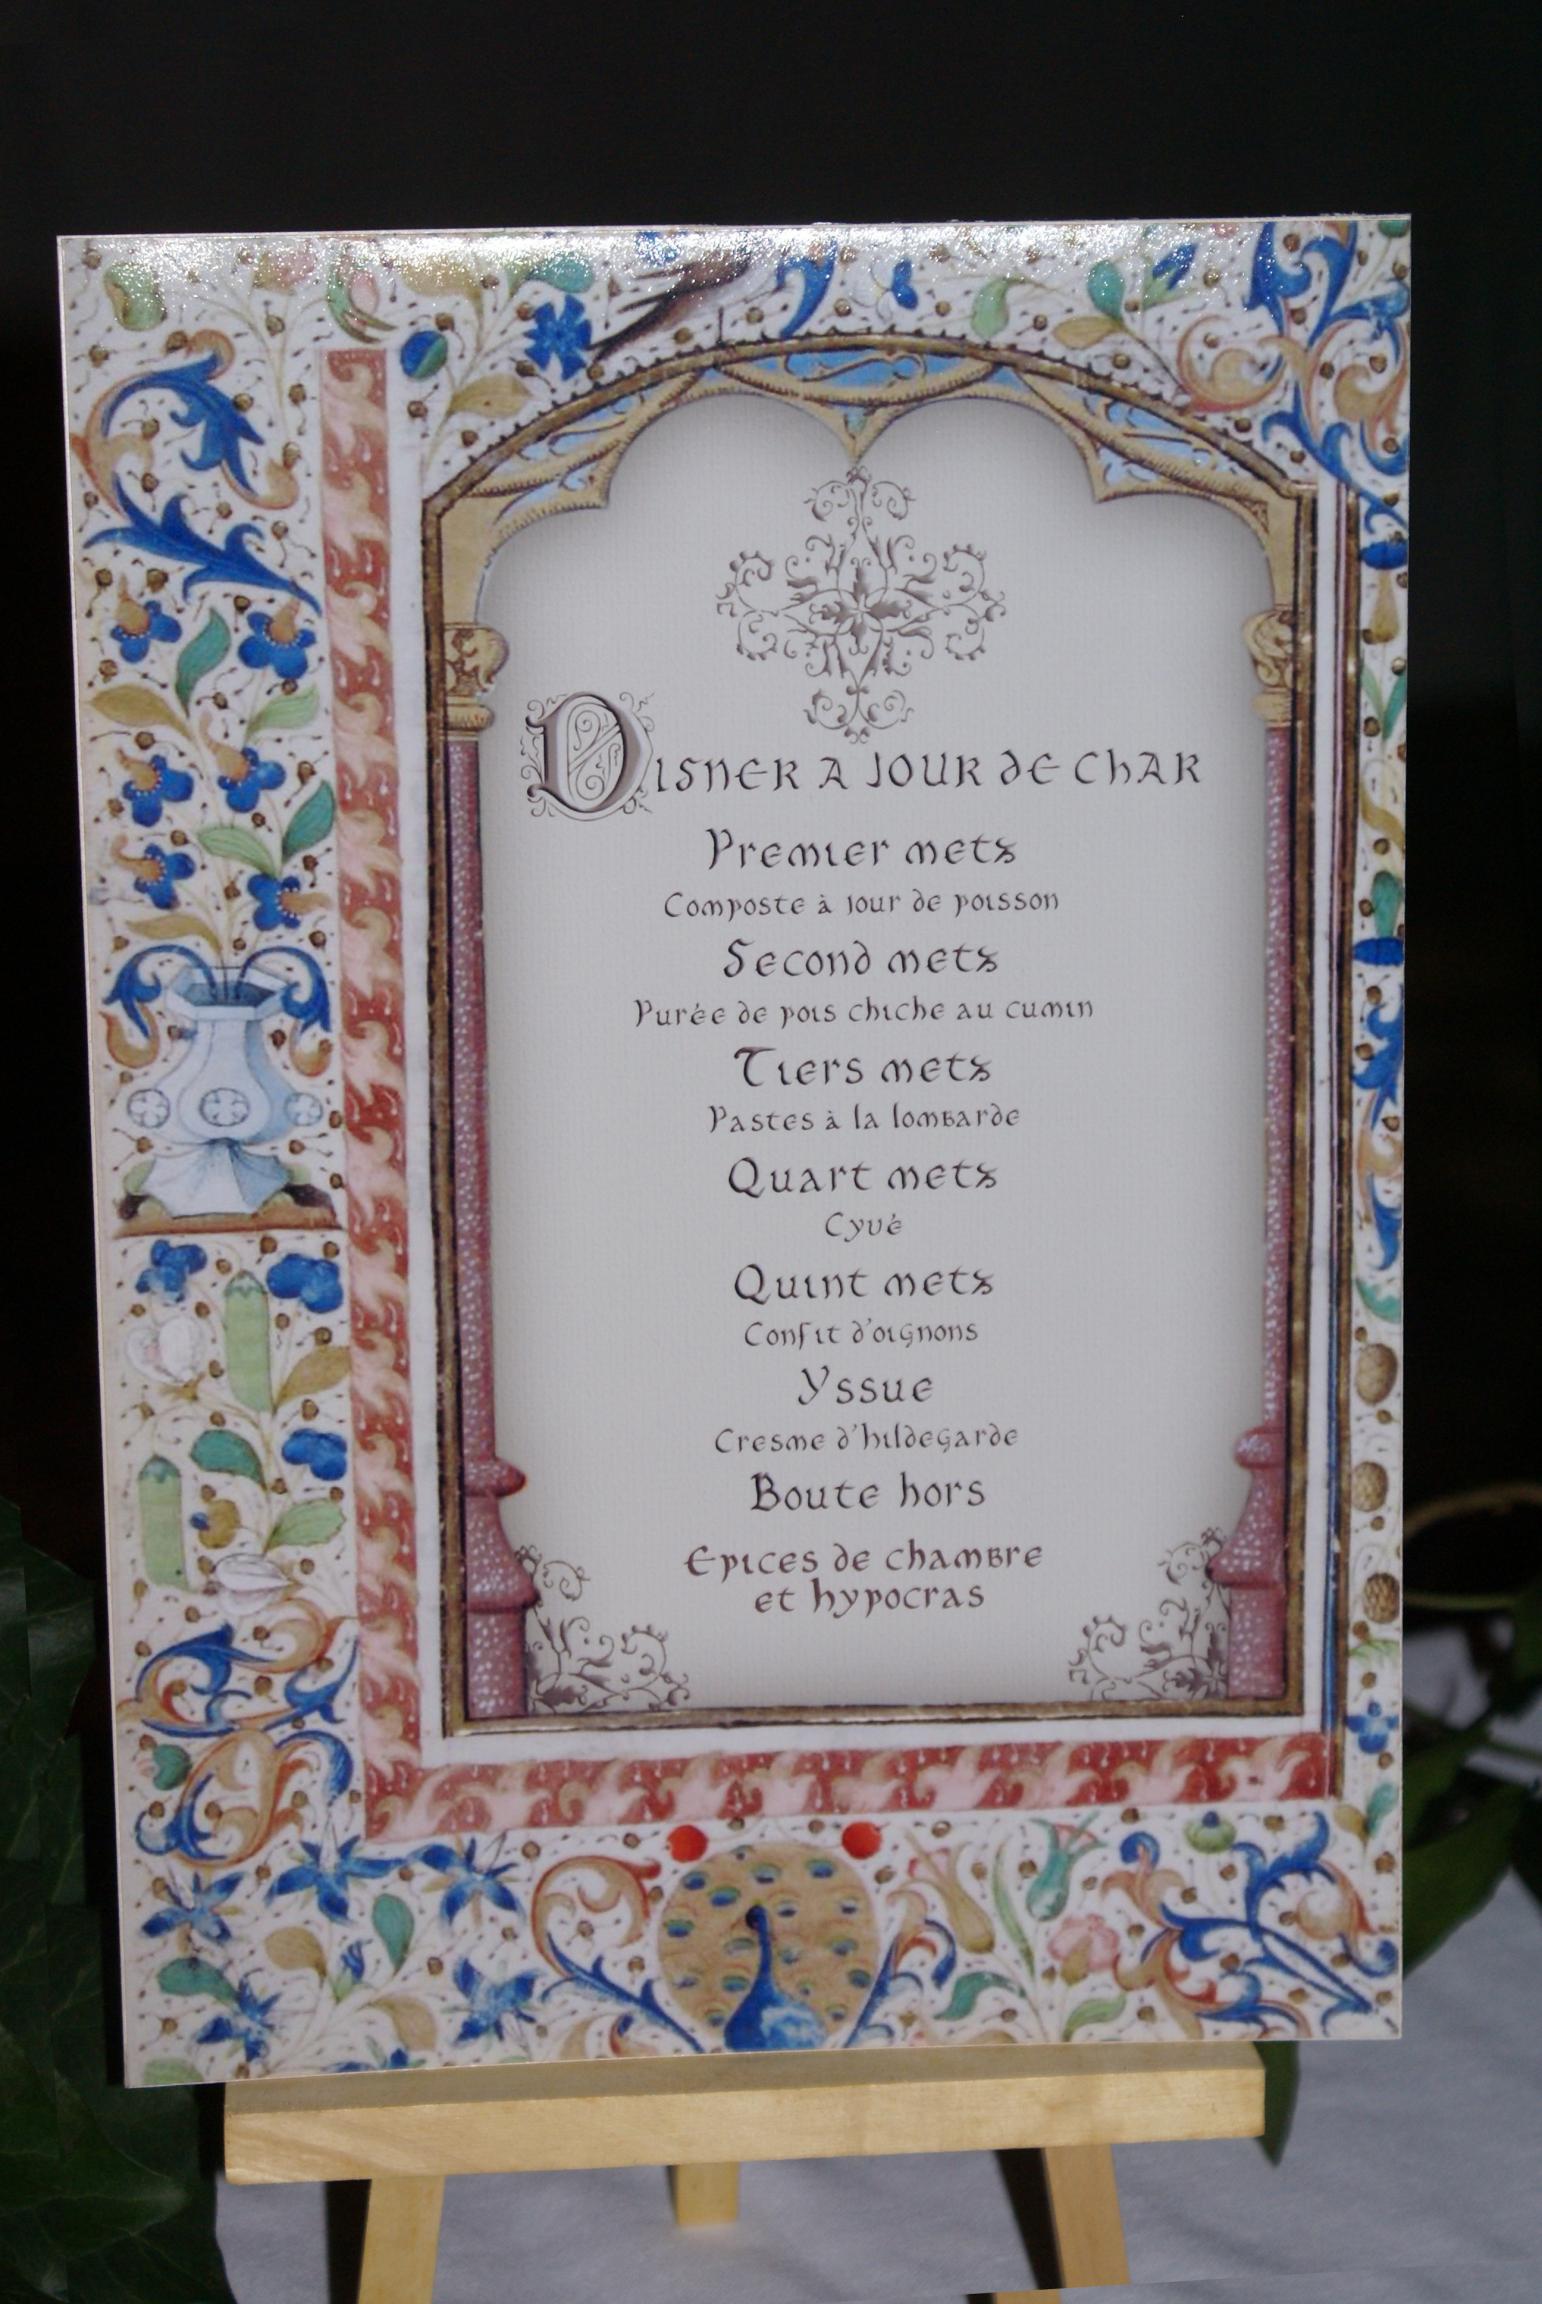 Disner a jour de char
Premier mets
Composte à jour de poisson
Second mets
Purée de pois chiche au cumin
Tiers mets
Pastes à la lombarde
Quart mets
Cyvé
Quint mets
Confit d'oignons
Yssue
Cresme d'hildegarde
Boute hors
Epices de chambre
et hypocras